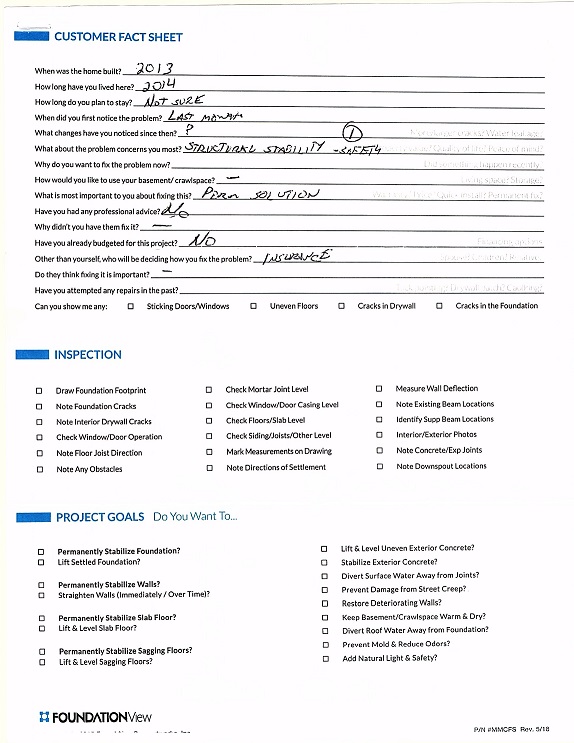 CUSTOMER FACT SHEET
When was the home built? 2013
How long have you lived here? 2014
How long do you plan to stay? NOT SURE
When did you first notice the problem? LAST MONTH
What changes have you noticed since then? ?
What about the problem concerns you most? STRUCTURAL STABILITY - SAFETY ①
Why do you want to fix the problem now?
How would you like to use your basement/ crawlspace? —
What is most important to you about fixing this? PERM SOLUTION
Have you had any professional advice? No
Why didn't you have them fix it? —
Have you already budgeted for this project? NO
Other than yourself, who will be deciding how you fix the problem? INSURANCE
Do they think fixing it is important? —
Have you attempted any repairs in the past?
Can you show me any: ☐ Sticking Doors/Windows ☐ Uneven Floors ☐ Cracks in Drywall ☐ Cracks in the Foundation
INSPECTION
☐ Draw Foundation Footprint
☐ Note Foundation Cracks
☐ Note Interior Drywall Cracks
☐ Check Window/Door Operation
☐ Note Floor Joist Direction
☐ Note Any Obstacles
☐ Check Mortar Joint Level
☐ Check Window/Door Casing Level
☐ Check Floors/Slab Level
☐ Check Siding/Joists/Other Level
☐ Mark Measurements on Drawing
☐ Note Directions of Settlement
☐ Measure Wall Deflection
☐ Note Existing Beam Locations
☐ Identify Supp Beam Locations
☐ Interior/Exterior Photos
☐ Note Concrete/Exp Joints
☐ Note Downspout Locations
PROJECT GOALS Do You Want To...
☐ Permanently Stabilize Foundation?
☐ Lift Settled Foundation?
☐ Permanently Stabilize Walls?
☐ Straighten Walls (Immediately / Over Time)?
☐ Permanently Stabilize Slab Floor?
☐ Lift & Level Slab Floor?
☐ Permanently Stabilize Sagging Floors?
☐ Lift & Level Sagging Floors?
☐ Lift & Level Uneven Exterior Concrete?
☐ Stabilize Exterior Concrete?
☐ Divert Surface Water Away from Joints?
☐ Prevent Damage from Street Creep?
☐ Restore Deteriorating Walls?
☐ Keep Basement/Crawlspace Warm & Dry?
☐ Divert Roof Water Away from Foundation?
☐ Prevent Mold & Reduce Odors?
☐ Add Natural Light & Safety?
FOUNDATIONView
P/N #MMCFS Rev. 5/18